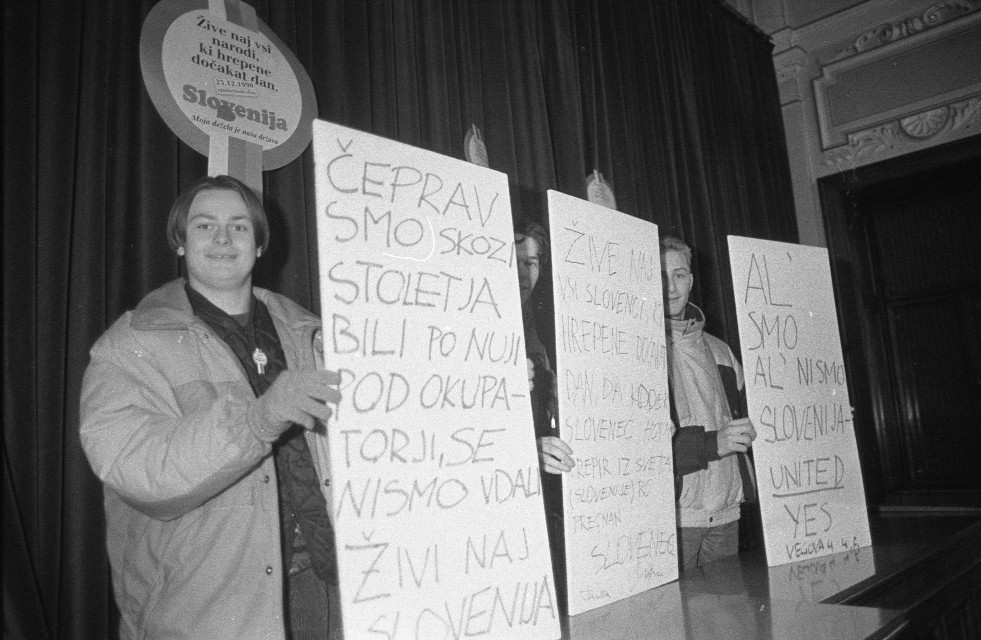 Žive naj vsi
narodi,
ki hrepene
dočakat dan.
25.12.1990
Slovenija
Moja dežela je naša država
ČEPRAV
SMO SKOZI
STOLETJA
BILI PO NUJI
POD OKUPA-
TORJI, SE
NISMO VDALI
ŽIVI NAJ
SLOVENIJA
ŽIVE NAJ
VSI SLOVENCI, KI
HREPENE
DAN, DA KODER
SLOVENEC
PREPIR IZ SVETA
(SLOVENIJE) BO
PREGNAN
SLOVENEC
AL'
SMO
AL' NISMO
SLOVENIJA-
UNITED
YES
VEGOVA 4